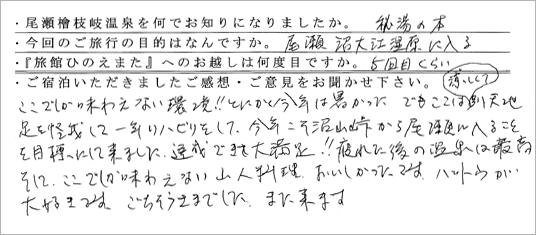 ・尾瀬檜枝岐温泉を何でお知りになりましたか。 秘湯の本
・今回のご旅行の目的はなんですか。 尾瀬 沼大江湿原に入る
・『旅館ひのえまた』へのお越しは何度目ですか。 5回目くらい
・ご宿泊いただきましたご感想・ご意見をお聞かせ下さい。 涼しくて
ここでしか味わえない環境!! とにかく今年は暑かった でもここは別天地
足を怪我して一年リハビリをして、今年こそ沼山峠から尾瀬に入ること
を目標にして来ました。達成できて大満足!! 疲れた後の温泉は最高
そして、ここでしか味わえない山人料理、おいしかったです。ハットウが
大好きです。ごちそうさまでした。また来ます